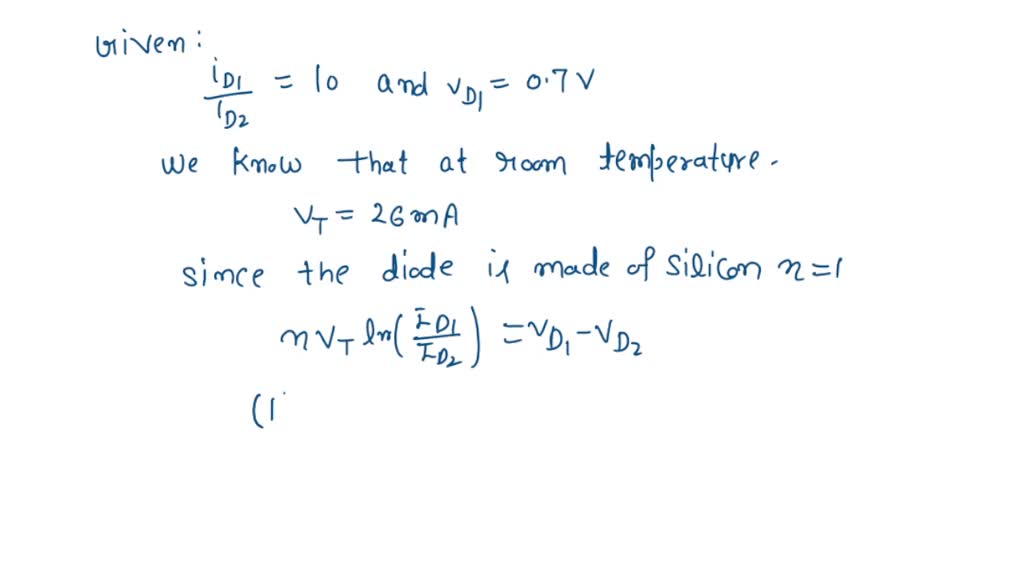 Given:
i_D1 / i_D2 = 10 and v_D1 = 0.7 V
we know that at room temperature.
V_T = 26 mA
since the diode is made of silicon n=1
n V_T ln(I_D1 / I_D2) = V_D1 - V_D2
(1